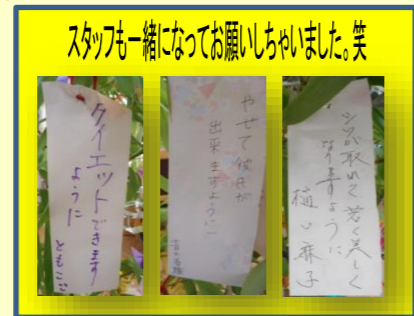 スタッフも一緒になってお願いしちゃいました。笑
ダイエットできます
ように
ともこ
やせて彼氏が
出来ますように
シワが取れて若く美しく
なりますように
樋口麻子